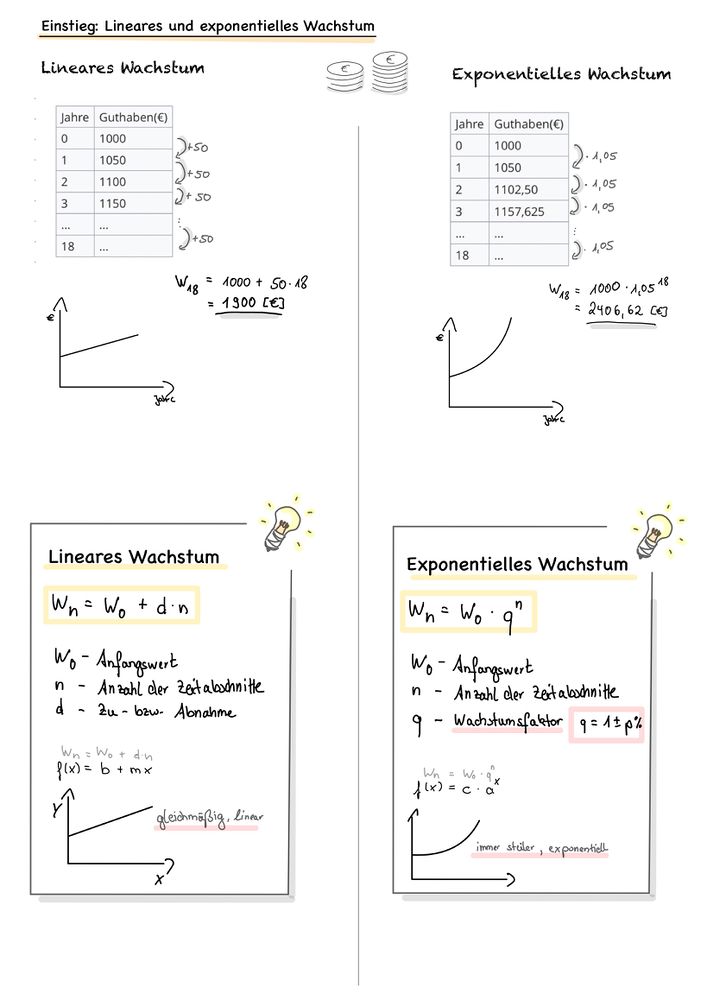 Einstieg: Lineares und exponentielles Wachstum
Lineares Wachstum
€ €
Jahre Guthaben(€)
0 1000
1 1050
2 1100
3 1150
... ...
18 ...
+50
+50
+50
⋮
+50
W₁₈ = 1000 + 50·18
= 1900 [€]
€
Jahre
Exponentielles Wachstum
Jahre Guthaben(€)
0 1000
1 1050
2 1102,50
3 1157,625
... ...
18 ...
· 1,05
· 1,05
· 1,05
⋮
· 1,05
W₁₈ = 1000 · 1,05¹⁸
= 2406,62 [€]
€
Jahre
Lineares Wachstum
Wₙ = W₀ + d·n
W₀ - Anfangswert
n - Anzahl der Zeitabschnitte
d - Zu- bzw. Abnahme
Wₙ = W₀ + d·n
f(x) = b + mx
Y
gleichmäßig, linear
X
Exponentielles Wachstum
Wₙ = W₀ · qⁿ
W₀ - Anfangswert
n - Anzahl der Zeitabschnitte
q - Wachstumsfaktor q = 1 ± p%
Wₙ = W₀ · qⁿ
f(x) = c · aˣ
immer steiler, exponentiell